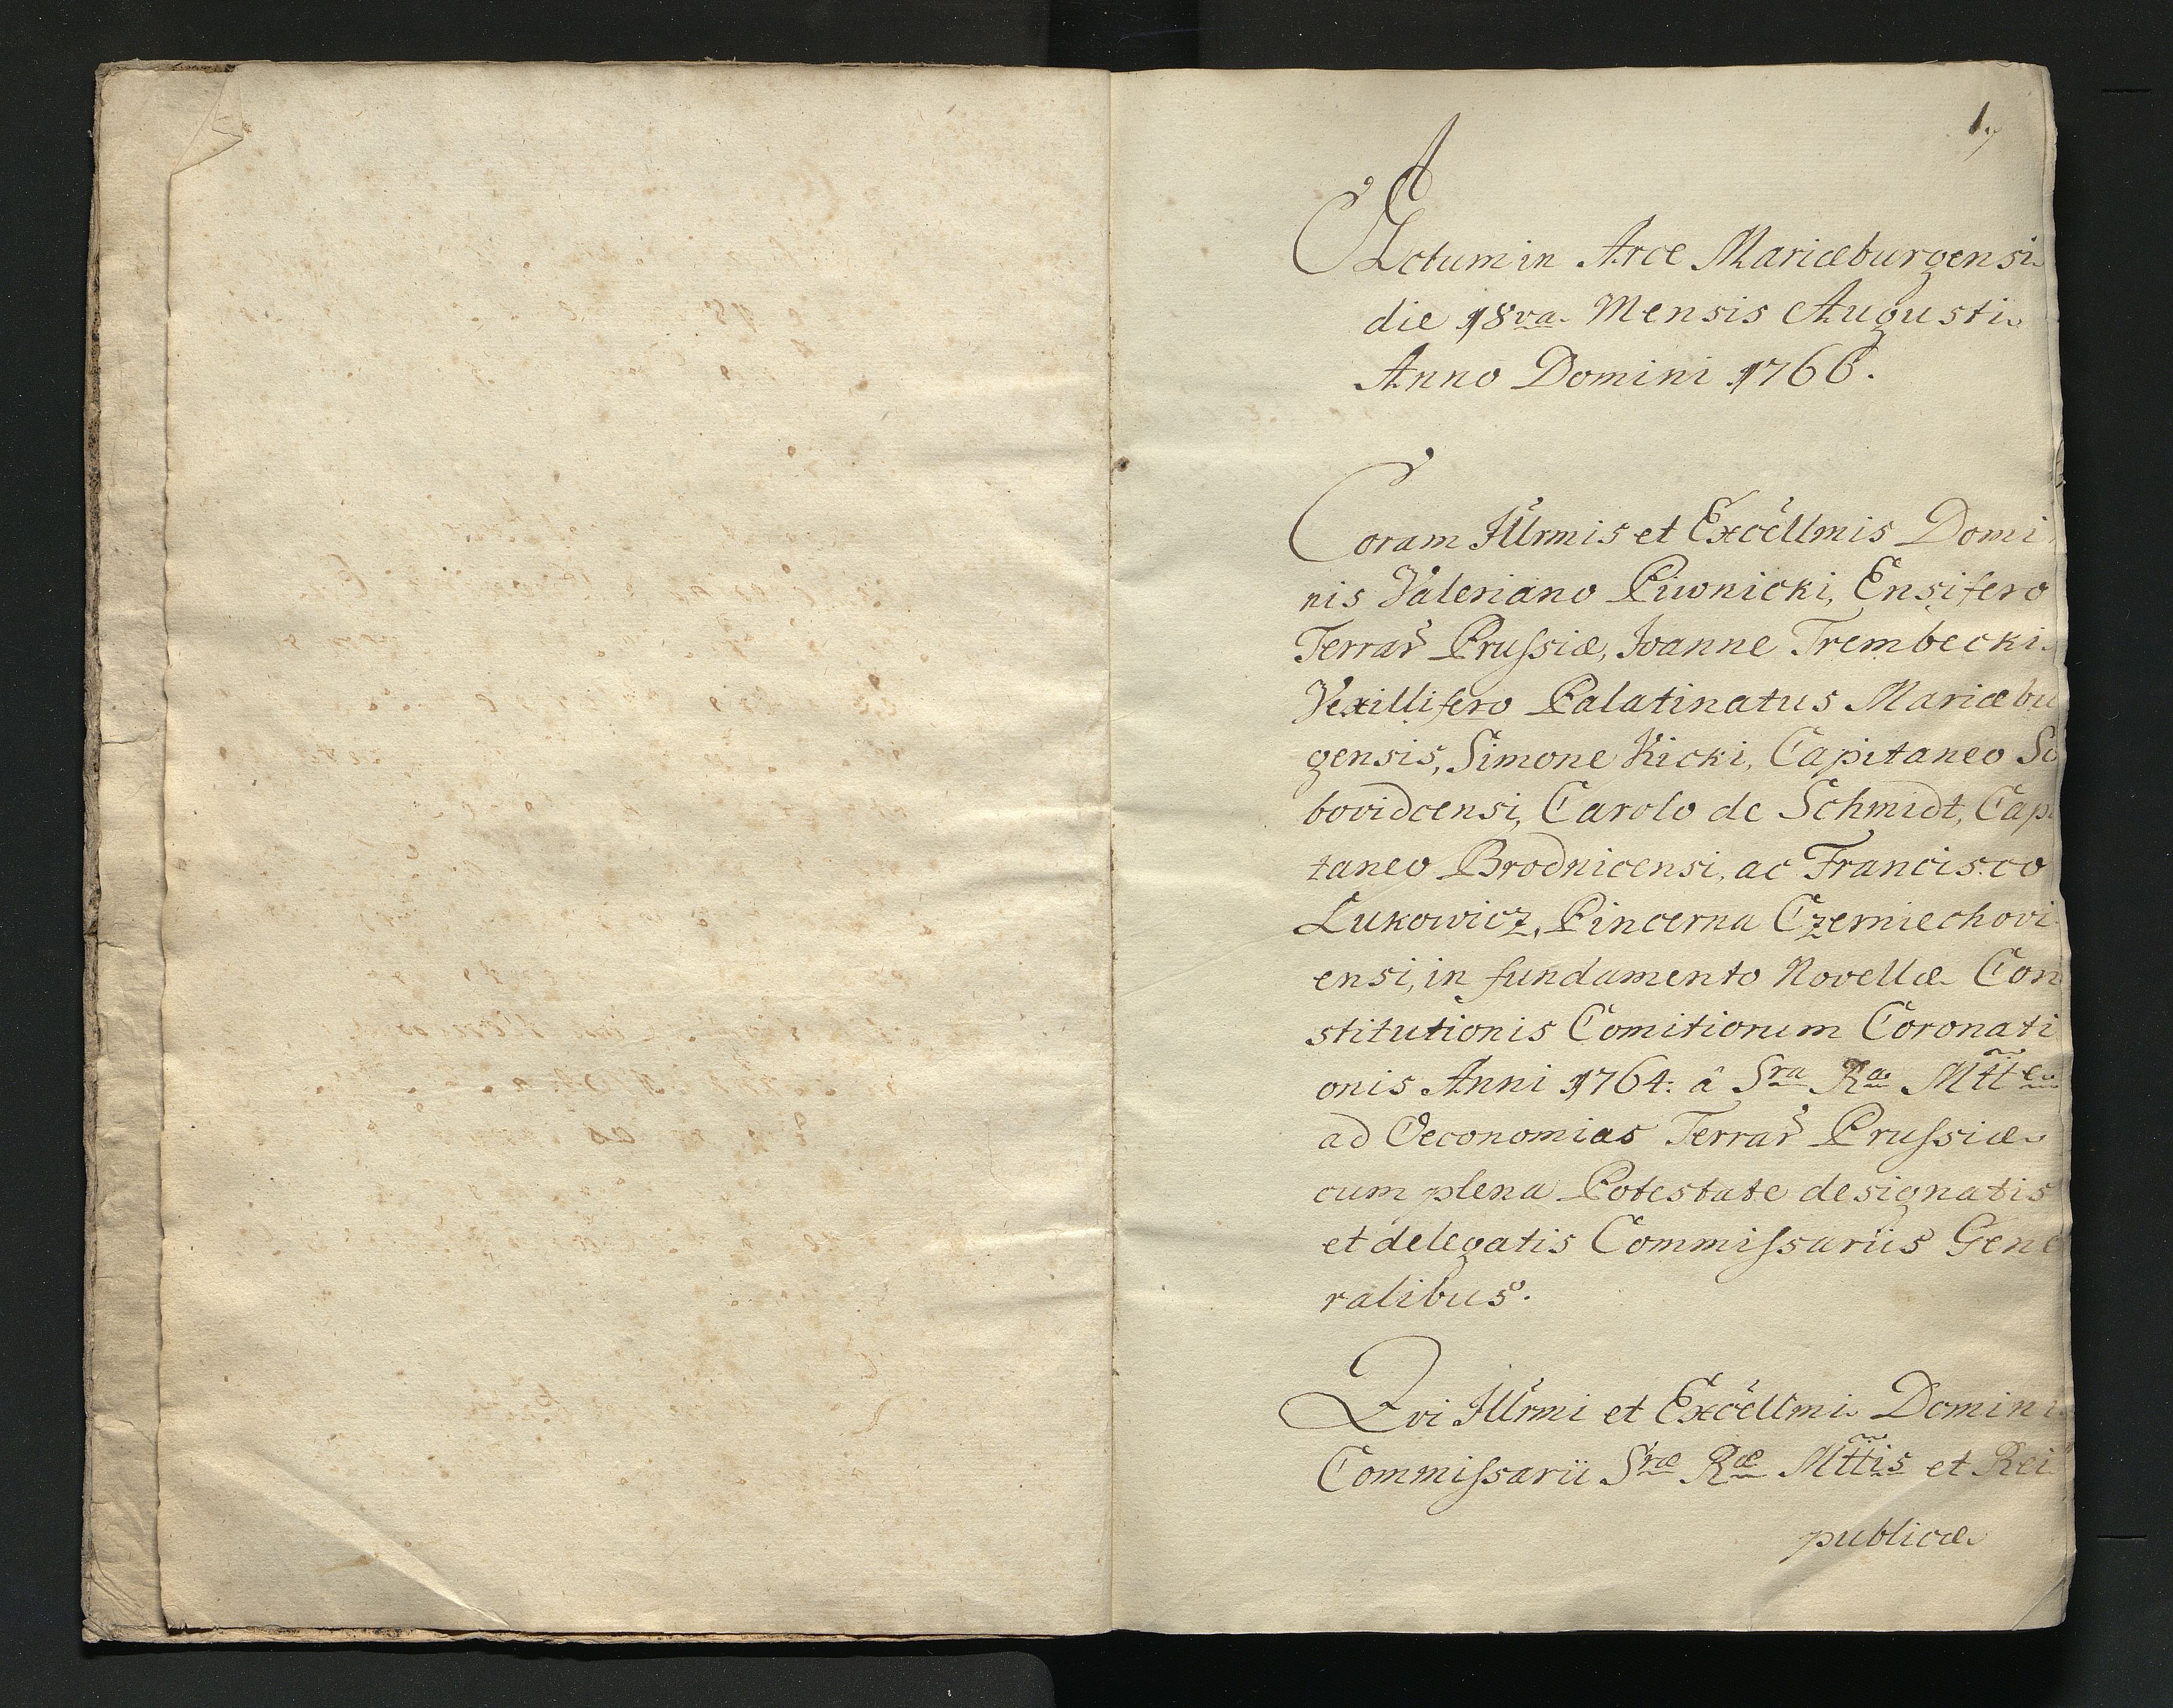 1.
Actum in Arce Mariæburgensi
die 18va. Mensis Augusti
Anno Domini 1766.
Coram Illrmis et Excellmis Domi
nis Valeriano Piwnicki, Ensifero
Terrar̃ Pruſsiæ, Joanne Trembecki
Vexillifero Palatinatus Mariæbu
gensis, Simone Kicki, Capitaneo So
bovidcensi, Carolo de Schmidt, Capi
taneo Brodnicensi, ac Francisco
Lukowicz, Pincerna Czerniechovi
ensi, in fundamento Novellæ Con
stitutionis Comitiorum Coronati
onis Anni 1764. â Sra Ra Mtte
ad Oeconomias Terrar̃ Pruſsiæ
cum plena Potestate designatis
et delegatis Commiſsariis Gene
ralibus.
Qvi Illrmi et Excellmi Domini
Commiſsarii Sræ Ræ Mttis et Rei
publicæ